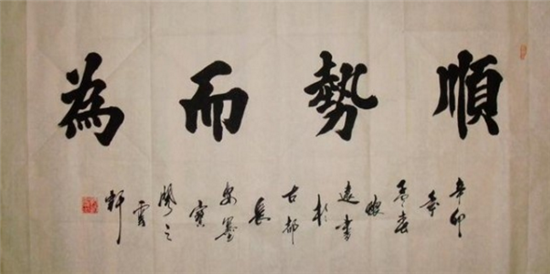 順勢而為
辛卯
年
孟春
遠書
於
古都
長
安墨
寶
軒